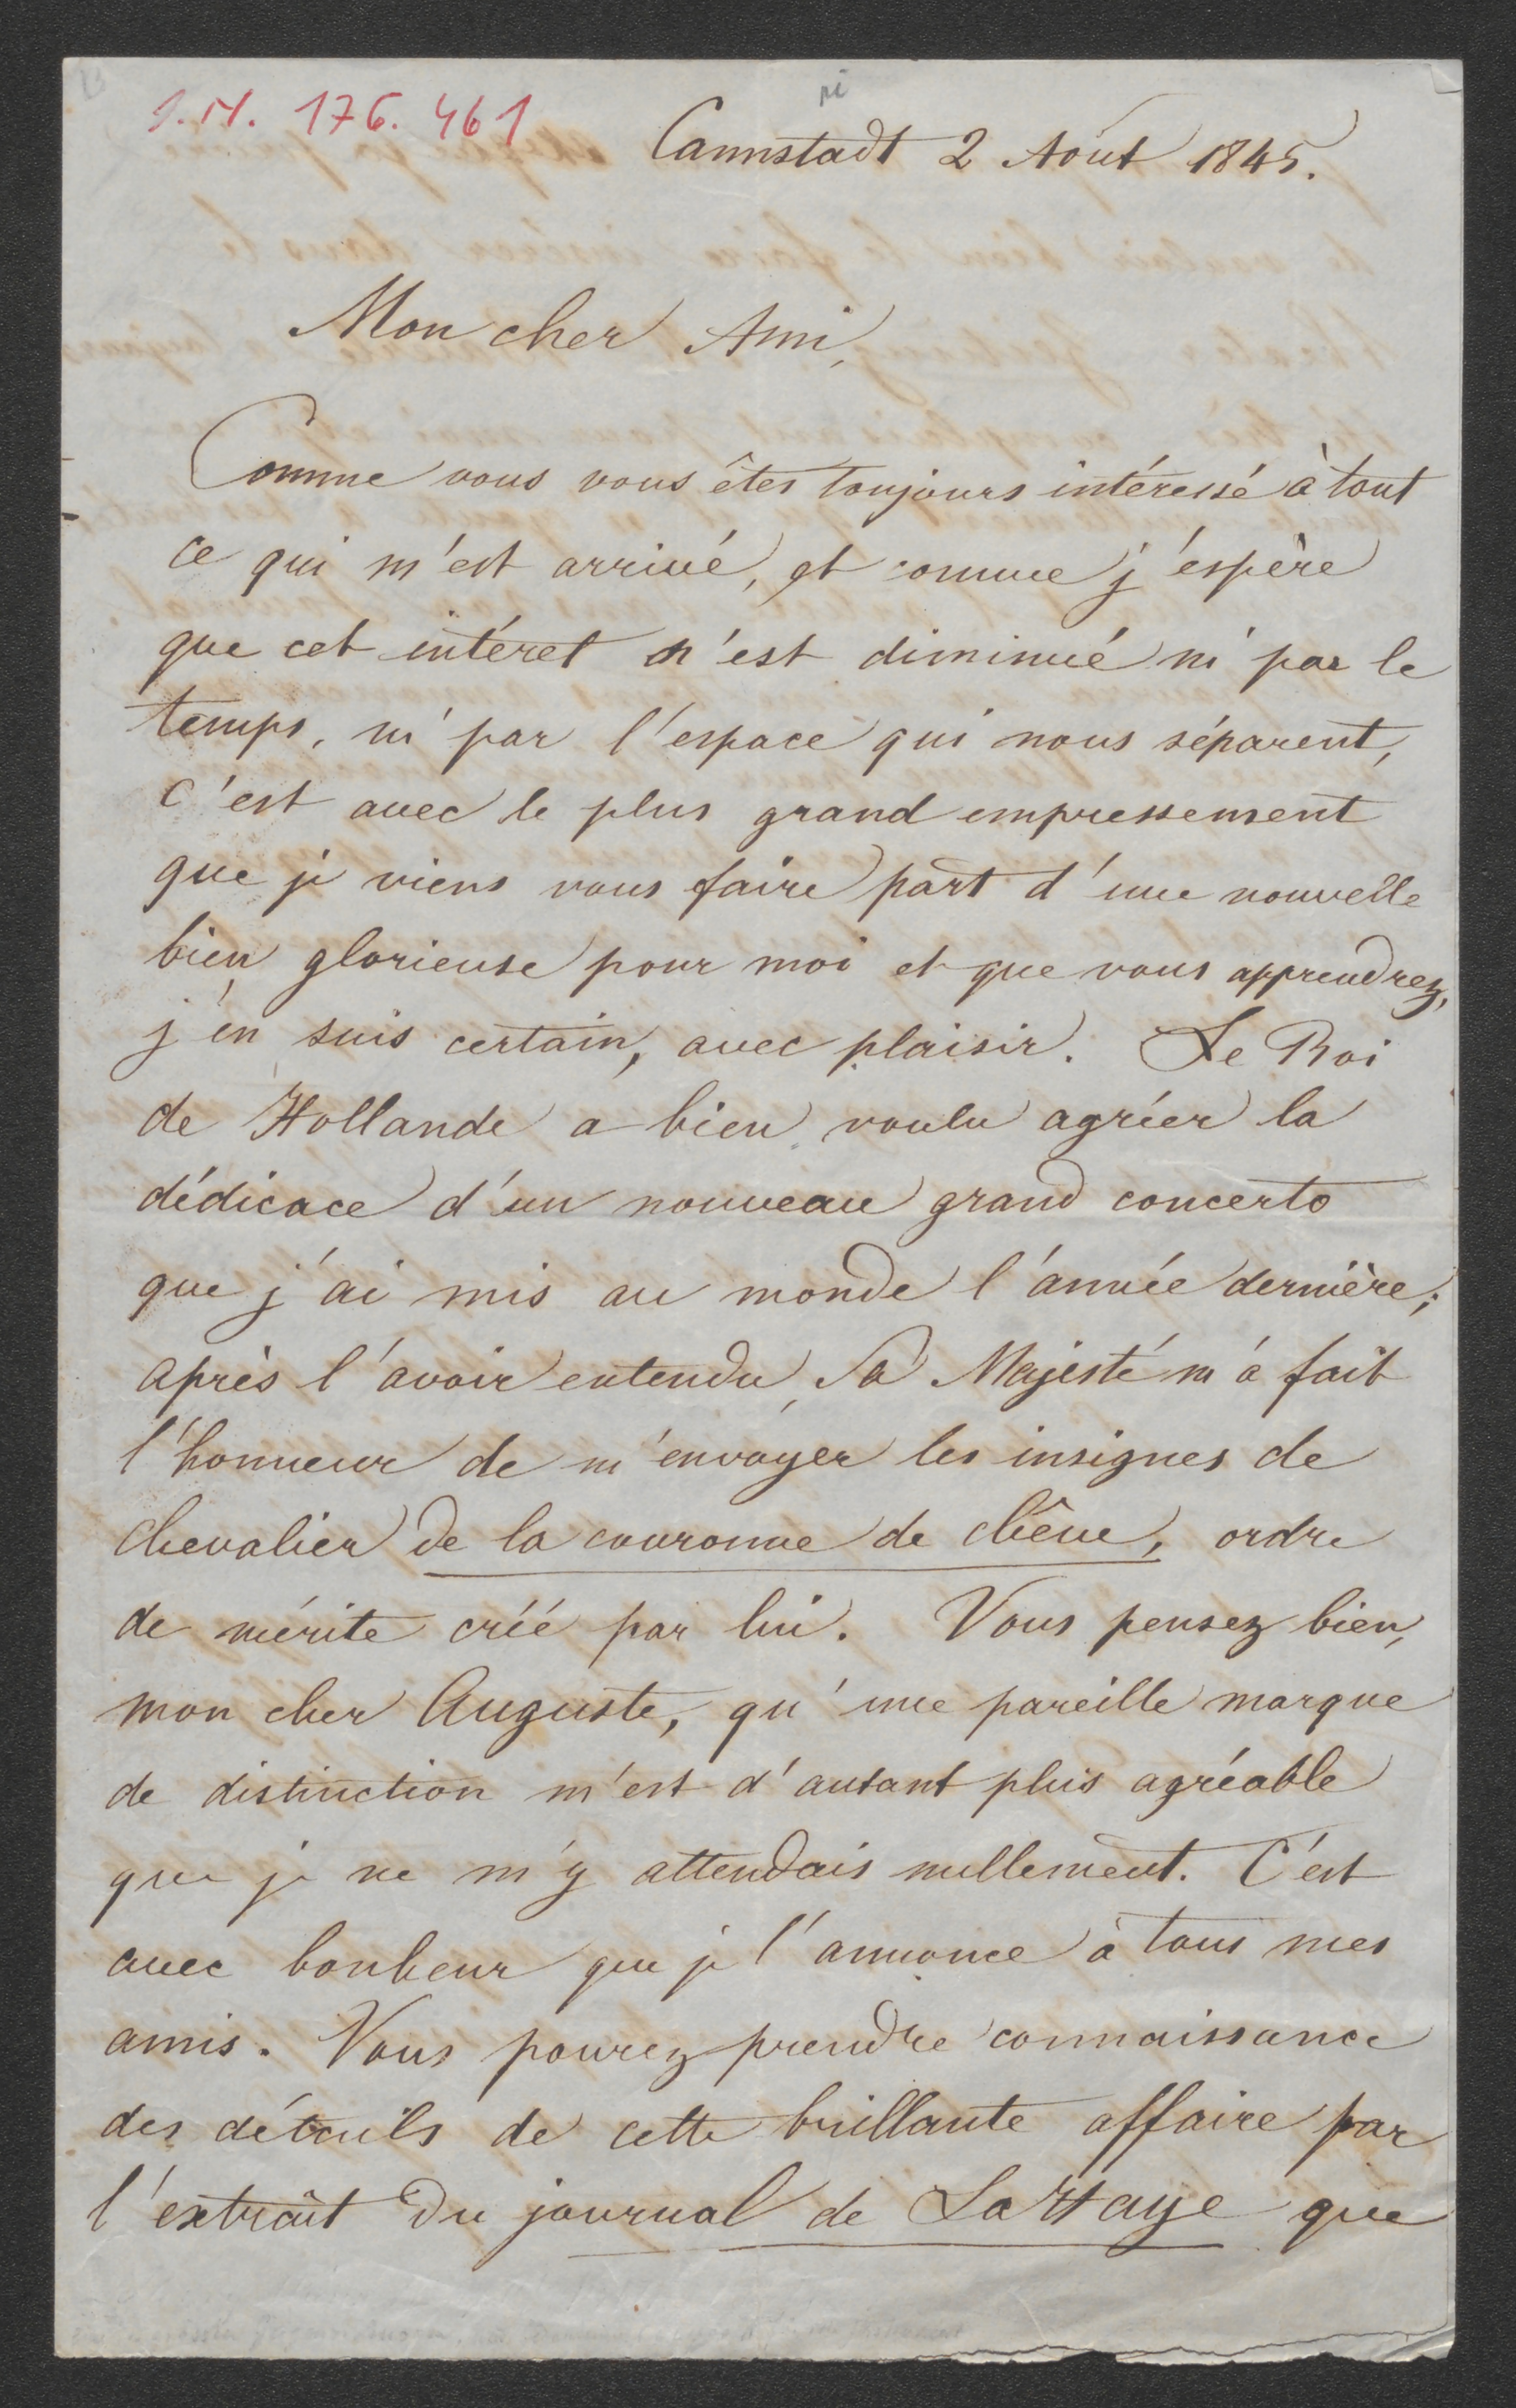 I.N. 176.461
Cannstadt 2 Août 1845.
Mon cher Ami,
Comme vous vous êtes toujours intéressé à tout
ce qui m'est arrivé, et comme j'espère
que cet intéret n'est diminué ni par le
temps, ni par l'espace qui nous séparent,
c'est avec le plus grand empressement
que je viens vous faire part d'une nouvelle
bien glorieuse pour moi et que vous apprendrez,
j'en suis certain, avec plaisir. Le Roi
de Hollande a bien voulu agréer la
dédicace d'un nouveau grand concerto
que j'ai mis au monde l'année dernière;
après l'avoir entendu, Sa Majesté m'a fait
l'honneur de m'envoyer les insignes de
chevalier de la couronne de chêne, ordre
de mérite créé par lui. Vous pensez bien,
mon cher Auguste, qu'une pareille marque
de distinction m'est d'autant plus agréable
que je ne m'y attendais nullement. C'est
avec bonheur que je l'annonce à tous mes
amis. Vous pourez prendre connaissance
des détails de cette brillante affaire par
l'extrait du journal de La Haye que